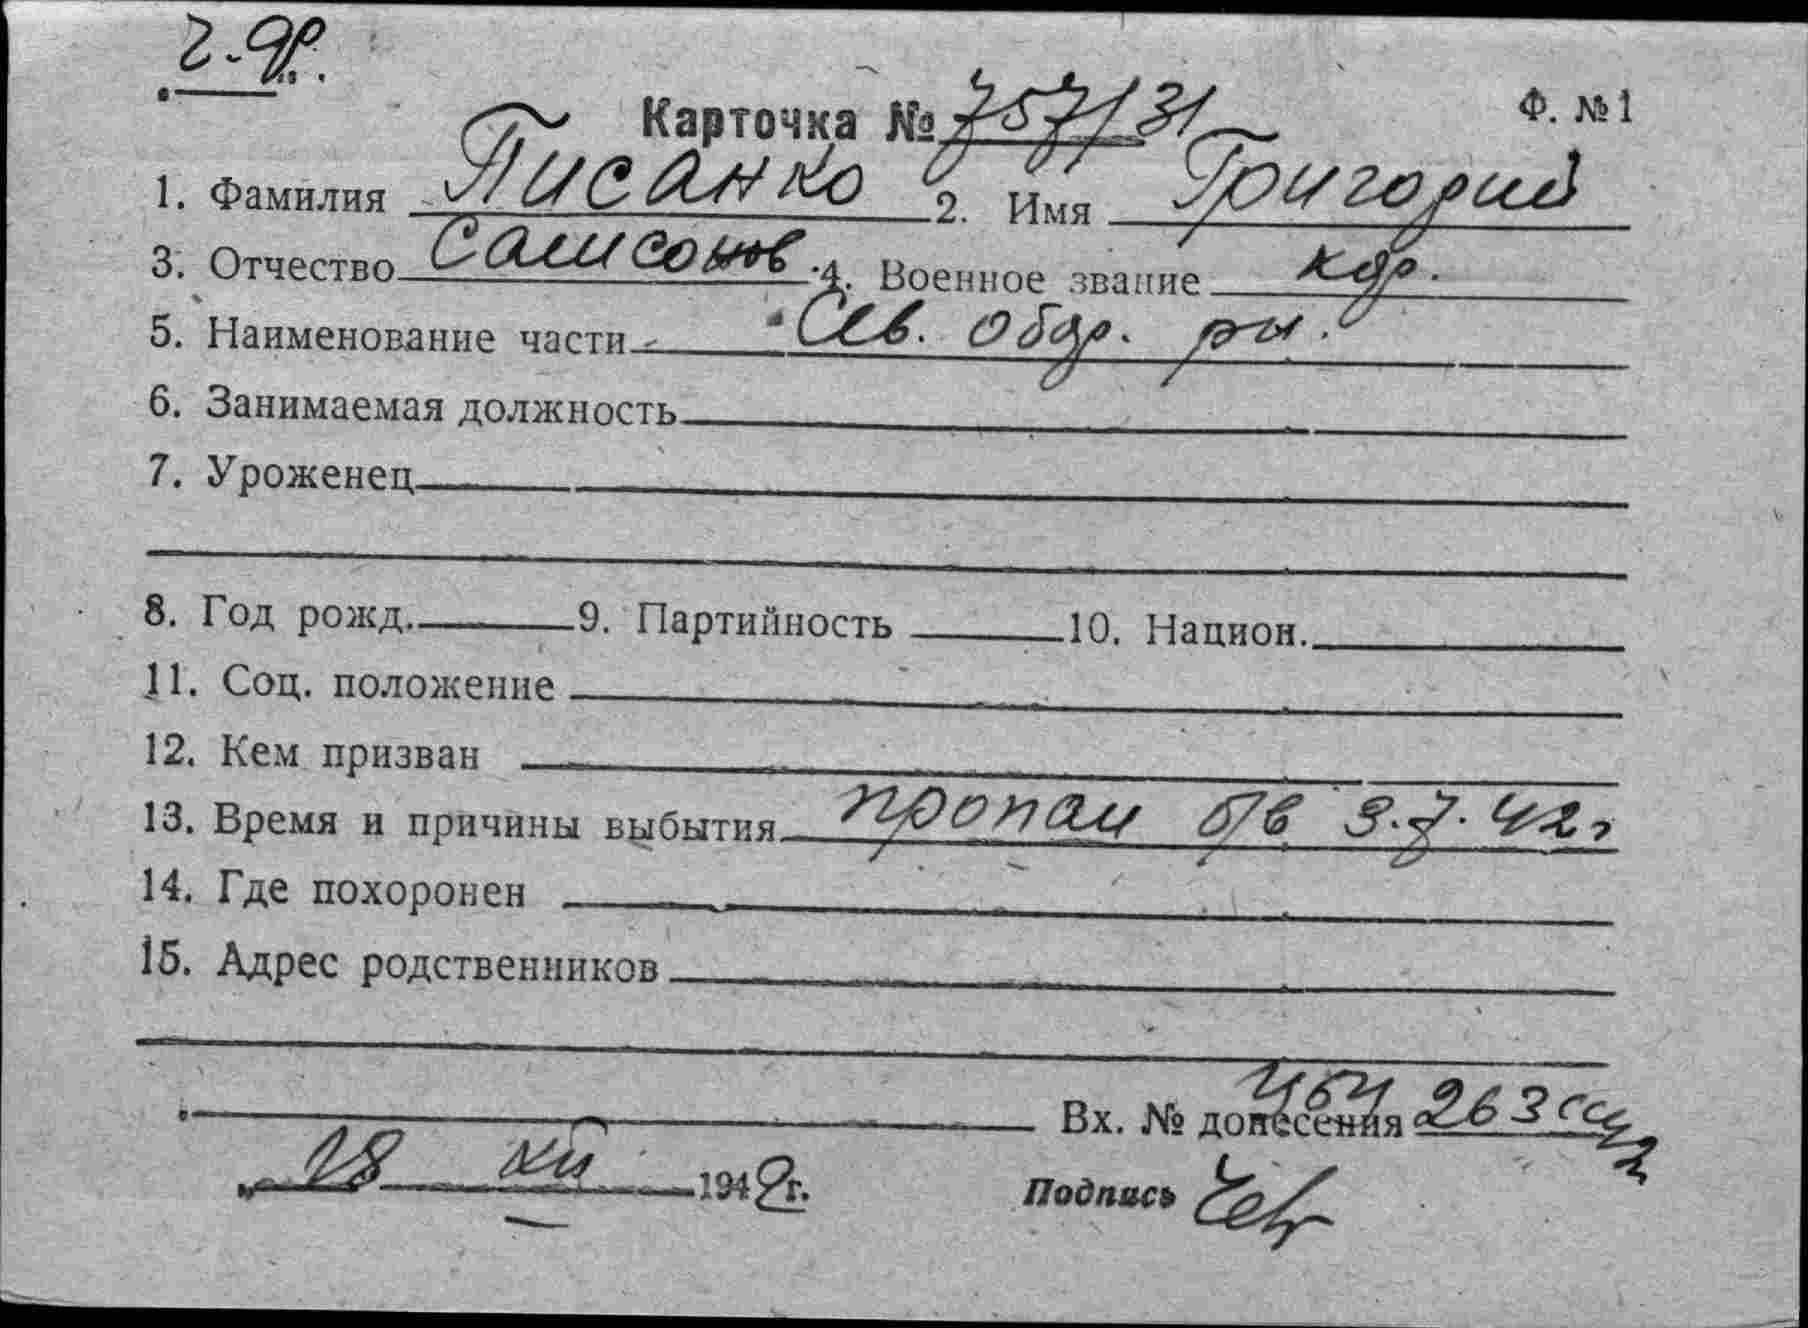 Карточка № 757/31
Ф. №1
1. Фамилия Писанко 2. Имя Григорий
3. Отчество Самсонов. 4. Военное звание кдр.
5. Наименование части Сев. обор. р-н.
6. Занимаемая должность
7. Уроженец
8. Год рожд. 9. Партийность 10. Национ.
11. Соц. положение
12. Кем призван
13. Время и причины выбытия пропал б/в 3.7.42г.
14. Где похоронен
15. Адрес родственников
Вх. № донесения 263сс
18 XII 1942г.
Подпись